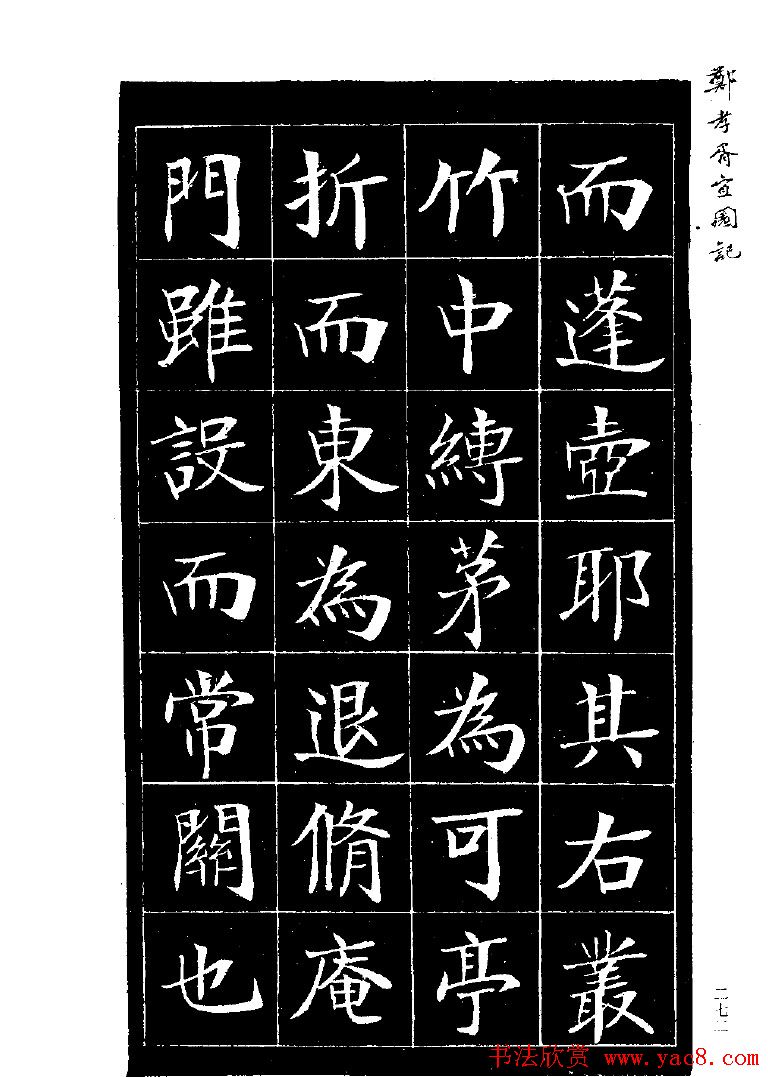 鄭孝胥宣園記
而蓬壺耶其右叢
竹中縛茅為可亭
折而東為退脩庵
門雖設而常關也
二七二
书法欣赏 www.yac8.com